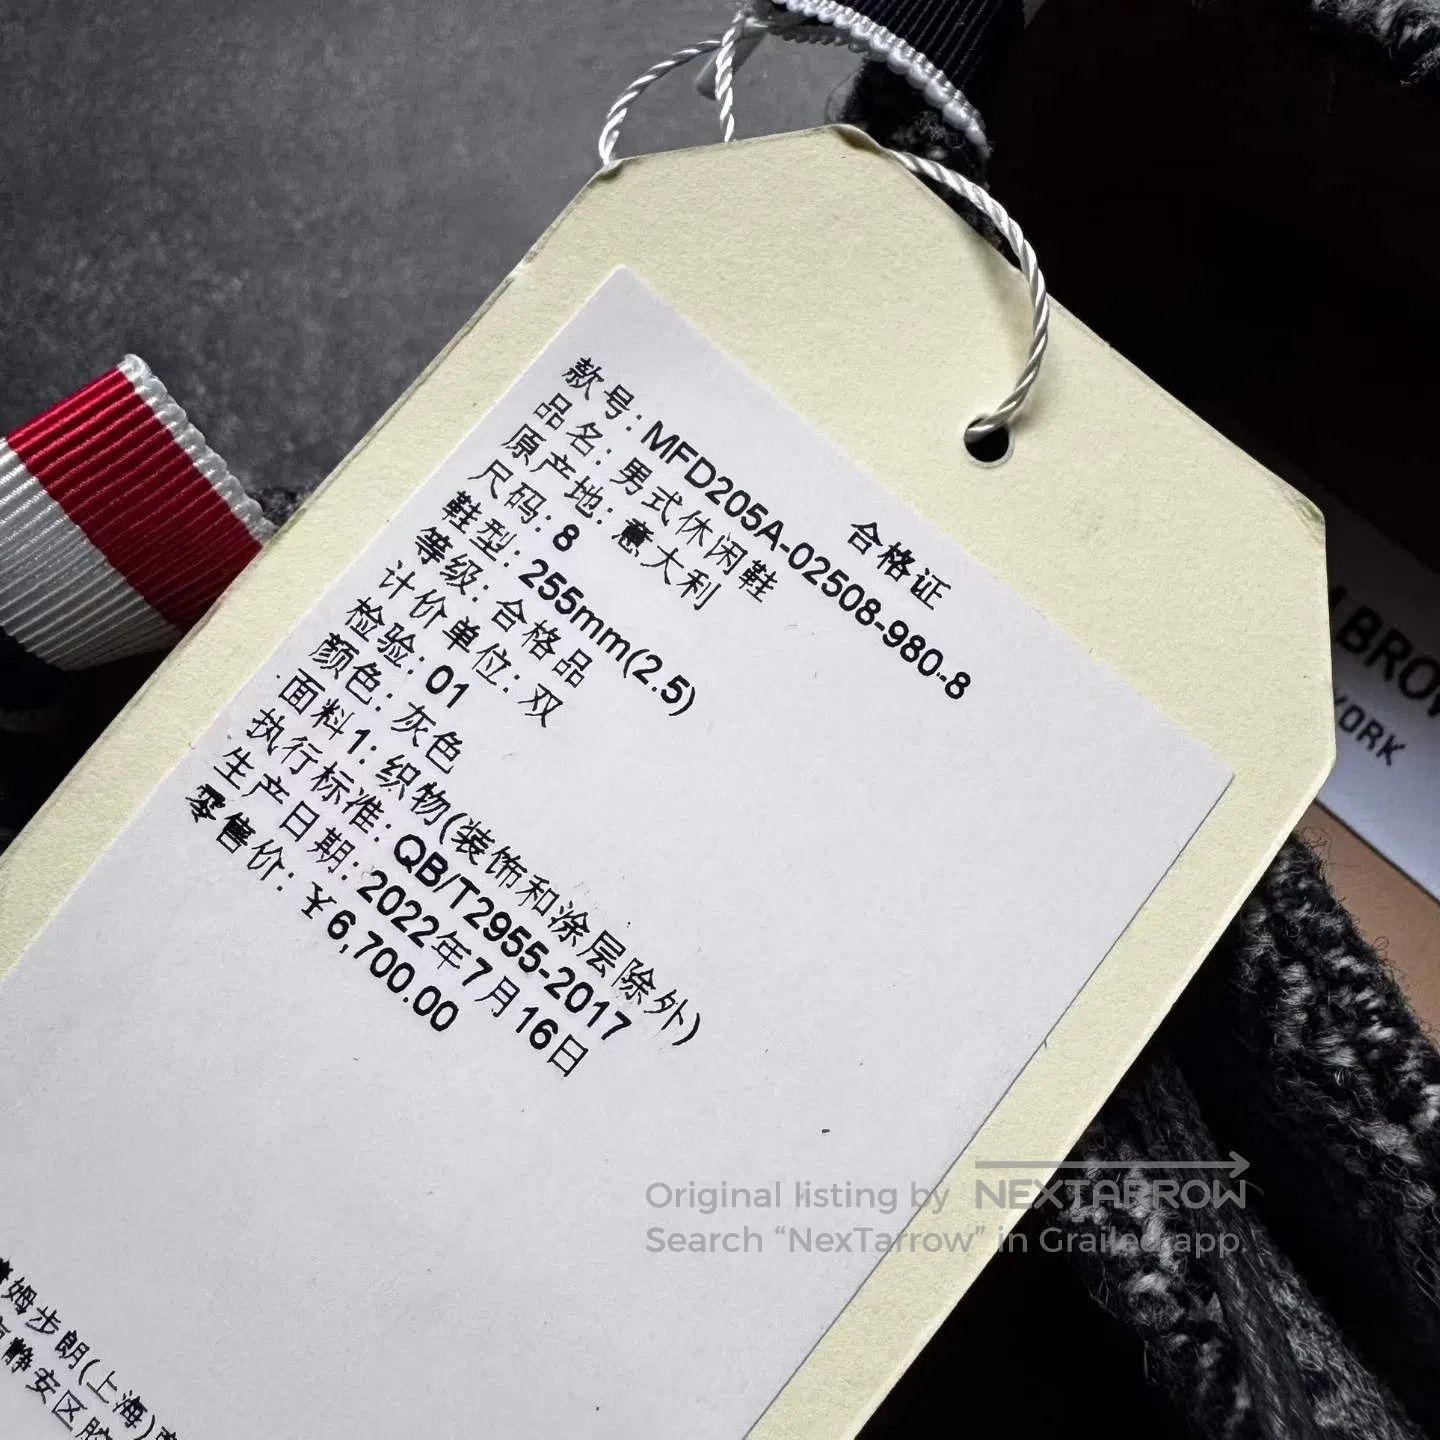 合格证
款号: MFD205A-02508-980-8
品名: 男式休闲鞋
原产地: 意大利
尺码: 8
鞋型: 255mm(2.5)
等级: 合格品
计价单位: 双
检验: 01
颜色: 灰色
面料1: 织物(装饰和涂层除外)
执行标准: QB/T2955-2017
生产日期: 2022年7月16日
零售价: ¥6,700.00
姆步朗(上海)
静安区
BROW
YORK
Original listing by NEXTARROW
Search “NexTarrow” in Grailed app.